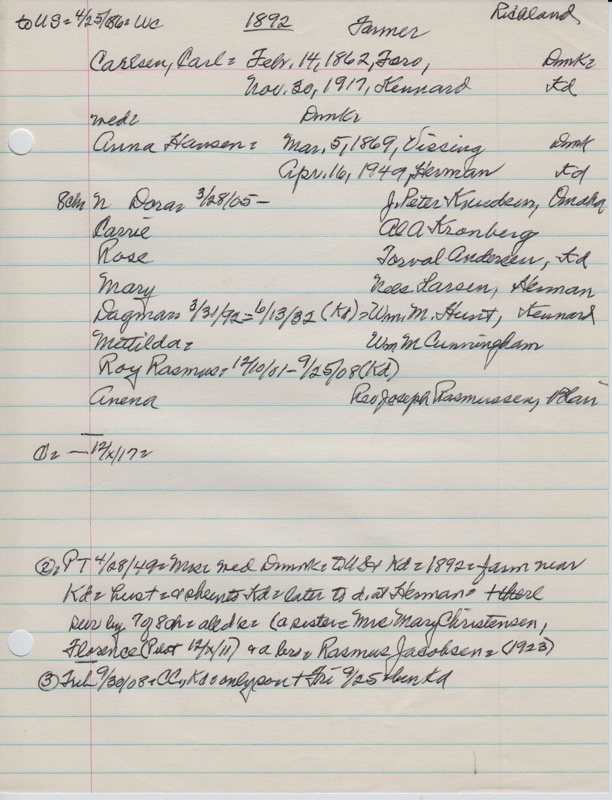 to US = 4/25/86 = WC 1892 Farmer Richland
Carlsen, Carl = Febr. 14, 1862, Foro, Dmk =
Nov. 30, 1917, Kennard Kd
med = Dmk =
Anna Hansen = Mar. 5, 1869, Vissing Dmk
Apr. 16, 1949, Herman Kd
8ch N Dora = 3/28/05 - J. Peter Knudsen, Omaha
Carrie Al A Kronberg
Rose Torval Andersen, Kd
Mary Nels Larsen, Herman
Dagmar = 3/31/92 = 6/13/32 (Kd) = Wm. M. Hunt, Kennard
Matilda = Wm. M Cunningham
Roy Rasmus = 12/10/01 - 9/25/08 (Kd)
Anena Leo Joseph Rasmussen, Blair
= — 12/X/17 =
②= PT 4/28/49 = med = to US + Kd = 1892 = farm near
Kd = = Kd = later to d. at Herman =
sur by 7 of 8ch = all d's = (a sister = Mrs Mary Christensen,
Florence (Pilot 12/X/11) + a bro = Rasmus Jacobsen = (1923)
③ Trib 9/30/08 = CC, Kd = only son + Fri 9/25 = bur Kd